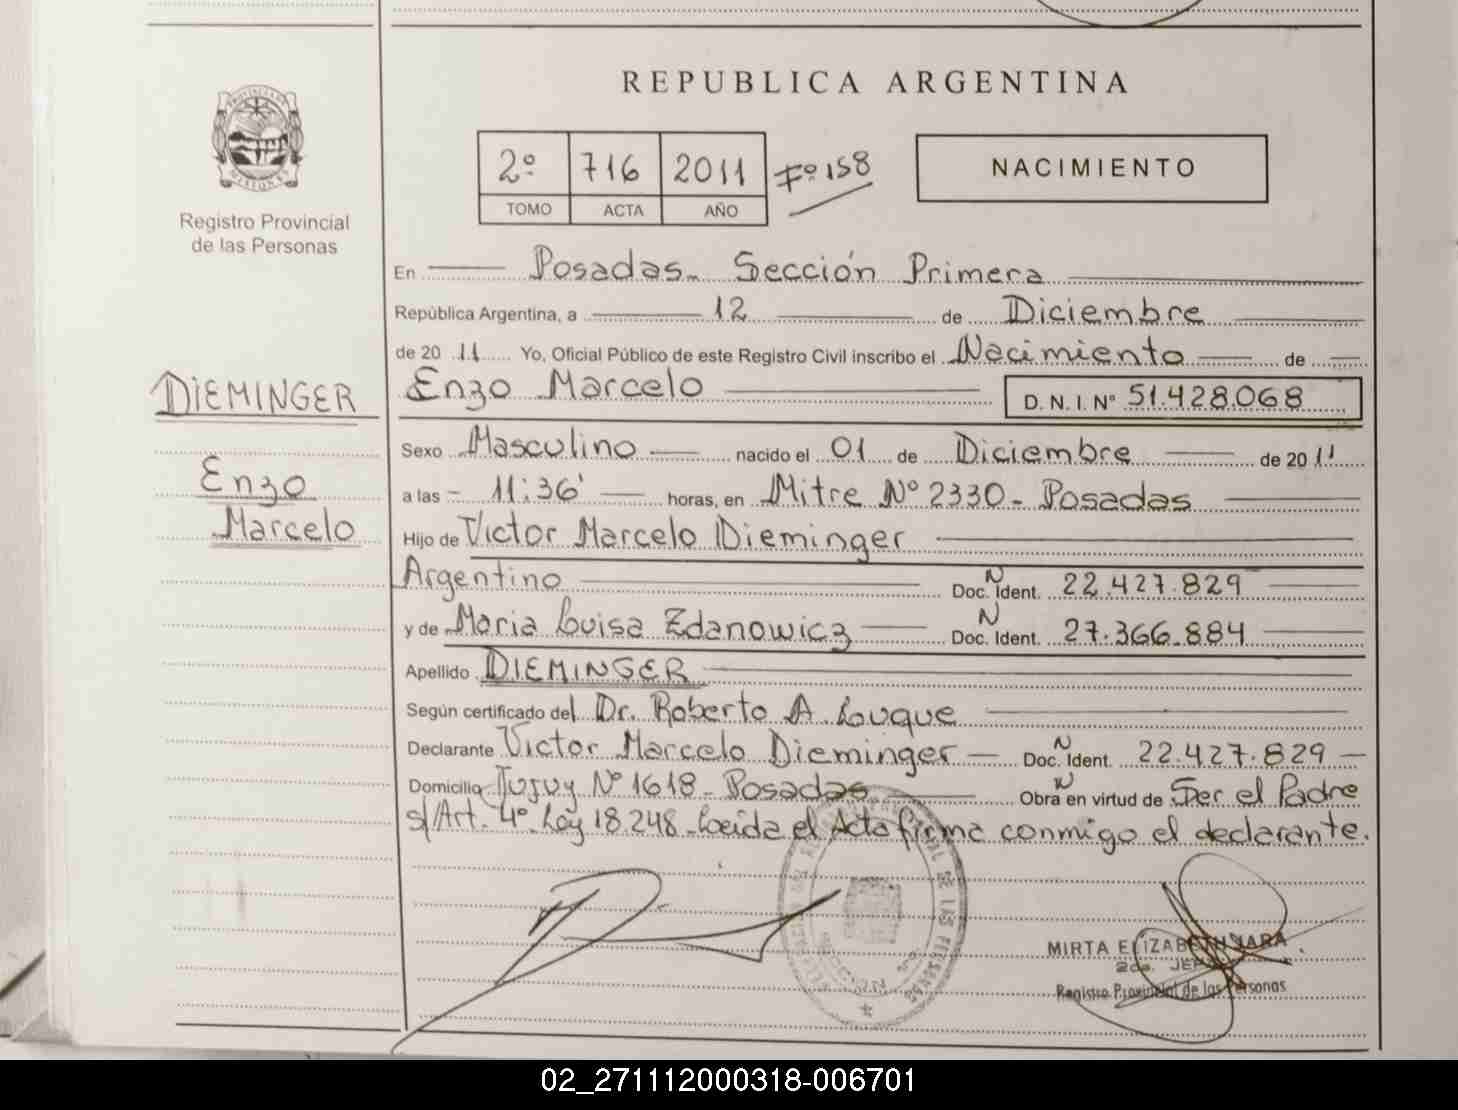 REPUBLICA ARGENTINA
PROVINCIA DE
MISIONES
Registro Provincial
de las Personas
2º 716 2011 Fº 158
TOMO ACTA AÑO
NACIMIENTO
En Posadas. Sección Primera
República Argentina, a 12 de Diciembre
de 20 11 Yo, Oficial Público de este Registro Civil inscribo el Nacimiento de
DIEMINGER
Enzo Marcelo D. N. I. Nº 51.428.068
Enzo
Marcelo
Sexo Masculino nacido el 01 de Diciembre de 20 11
a las - 11:36' horas, en Mitre Nº 2330 - Posadas
Hijo de Victor Marcelo Dieminger
Argentino Doc. N Ident. 22.427.829
y de Maria Luisa Zdanowicz Doc. N Ident. 27.366.884
Apellido DIEMINGER
Según certificado del Dr. Roberto A. Luque
Declarante Victor Marcelo Dieminger - Doc. N Ident. 22.427.829 -
Domicilio Jujuy Nº 1618 - Posadas Obra en virtud de Ser el Padre
s/Art. 4º Ley 18.248. Leida el Acta firma conmigo el declarante.
MIRTA ELIZABETH JARA
2da. JEFA
Registro Provincial de las Personas
02_271112000318-006701